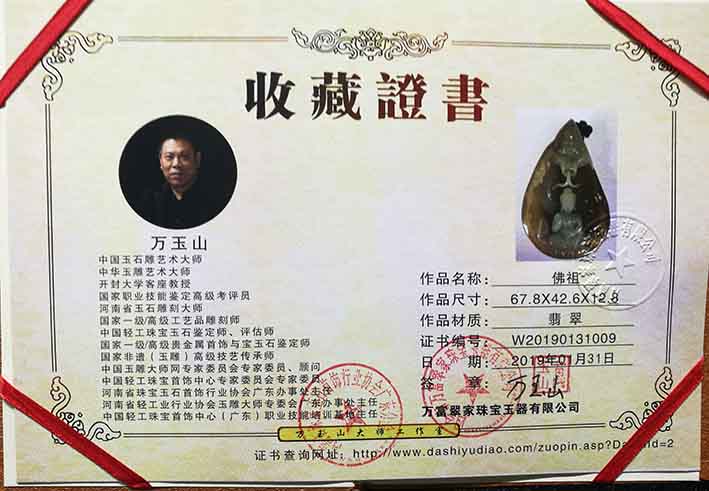 收藏證書
万玉山
中国玉石雕艺术大师
中华玉雕艺术大师
开封大学客座教授
国家职业技能鉴定高级考评员
河南省玉石雕刻大师
国家一级/高级工艺品雕刻师
中国轻工珠宝玉石鉴定师、评估师
国家一级/高级贵金属首饰与宝玉石鉴定师
国家非遗(玉雕)高级技艺传承师
中国玉雕大师网专家委员会专家委员、顾问
中国轻工珠宝首饰中心专家委员会专家委员
河南省珠宝玉石首饰行业协会广东办事处主任
河南省轻工业行业协会玉雕大师专委会广东办事处主任
中国轻工珠宝首饰中心(广东)职业技能培训基地主任
作品名称: 佛祖
作品尺寸: 67.8X42.6X12.8
作品材质: 翡翠
证书编号: W20190131009
日 期: 2019年01月31日
签 章: 万玉山
万富翠家珠宝玉器有限公司
万玉山大师工作室
证书查询网址: http://www.dashiyudiao.com/zuopin.asp?